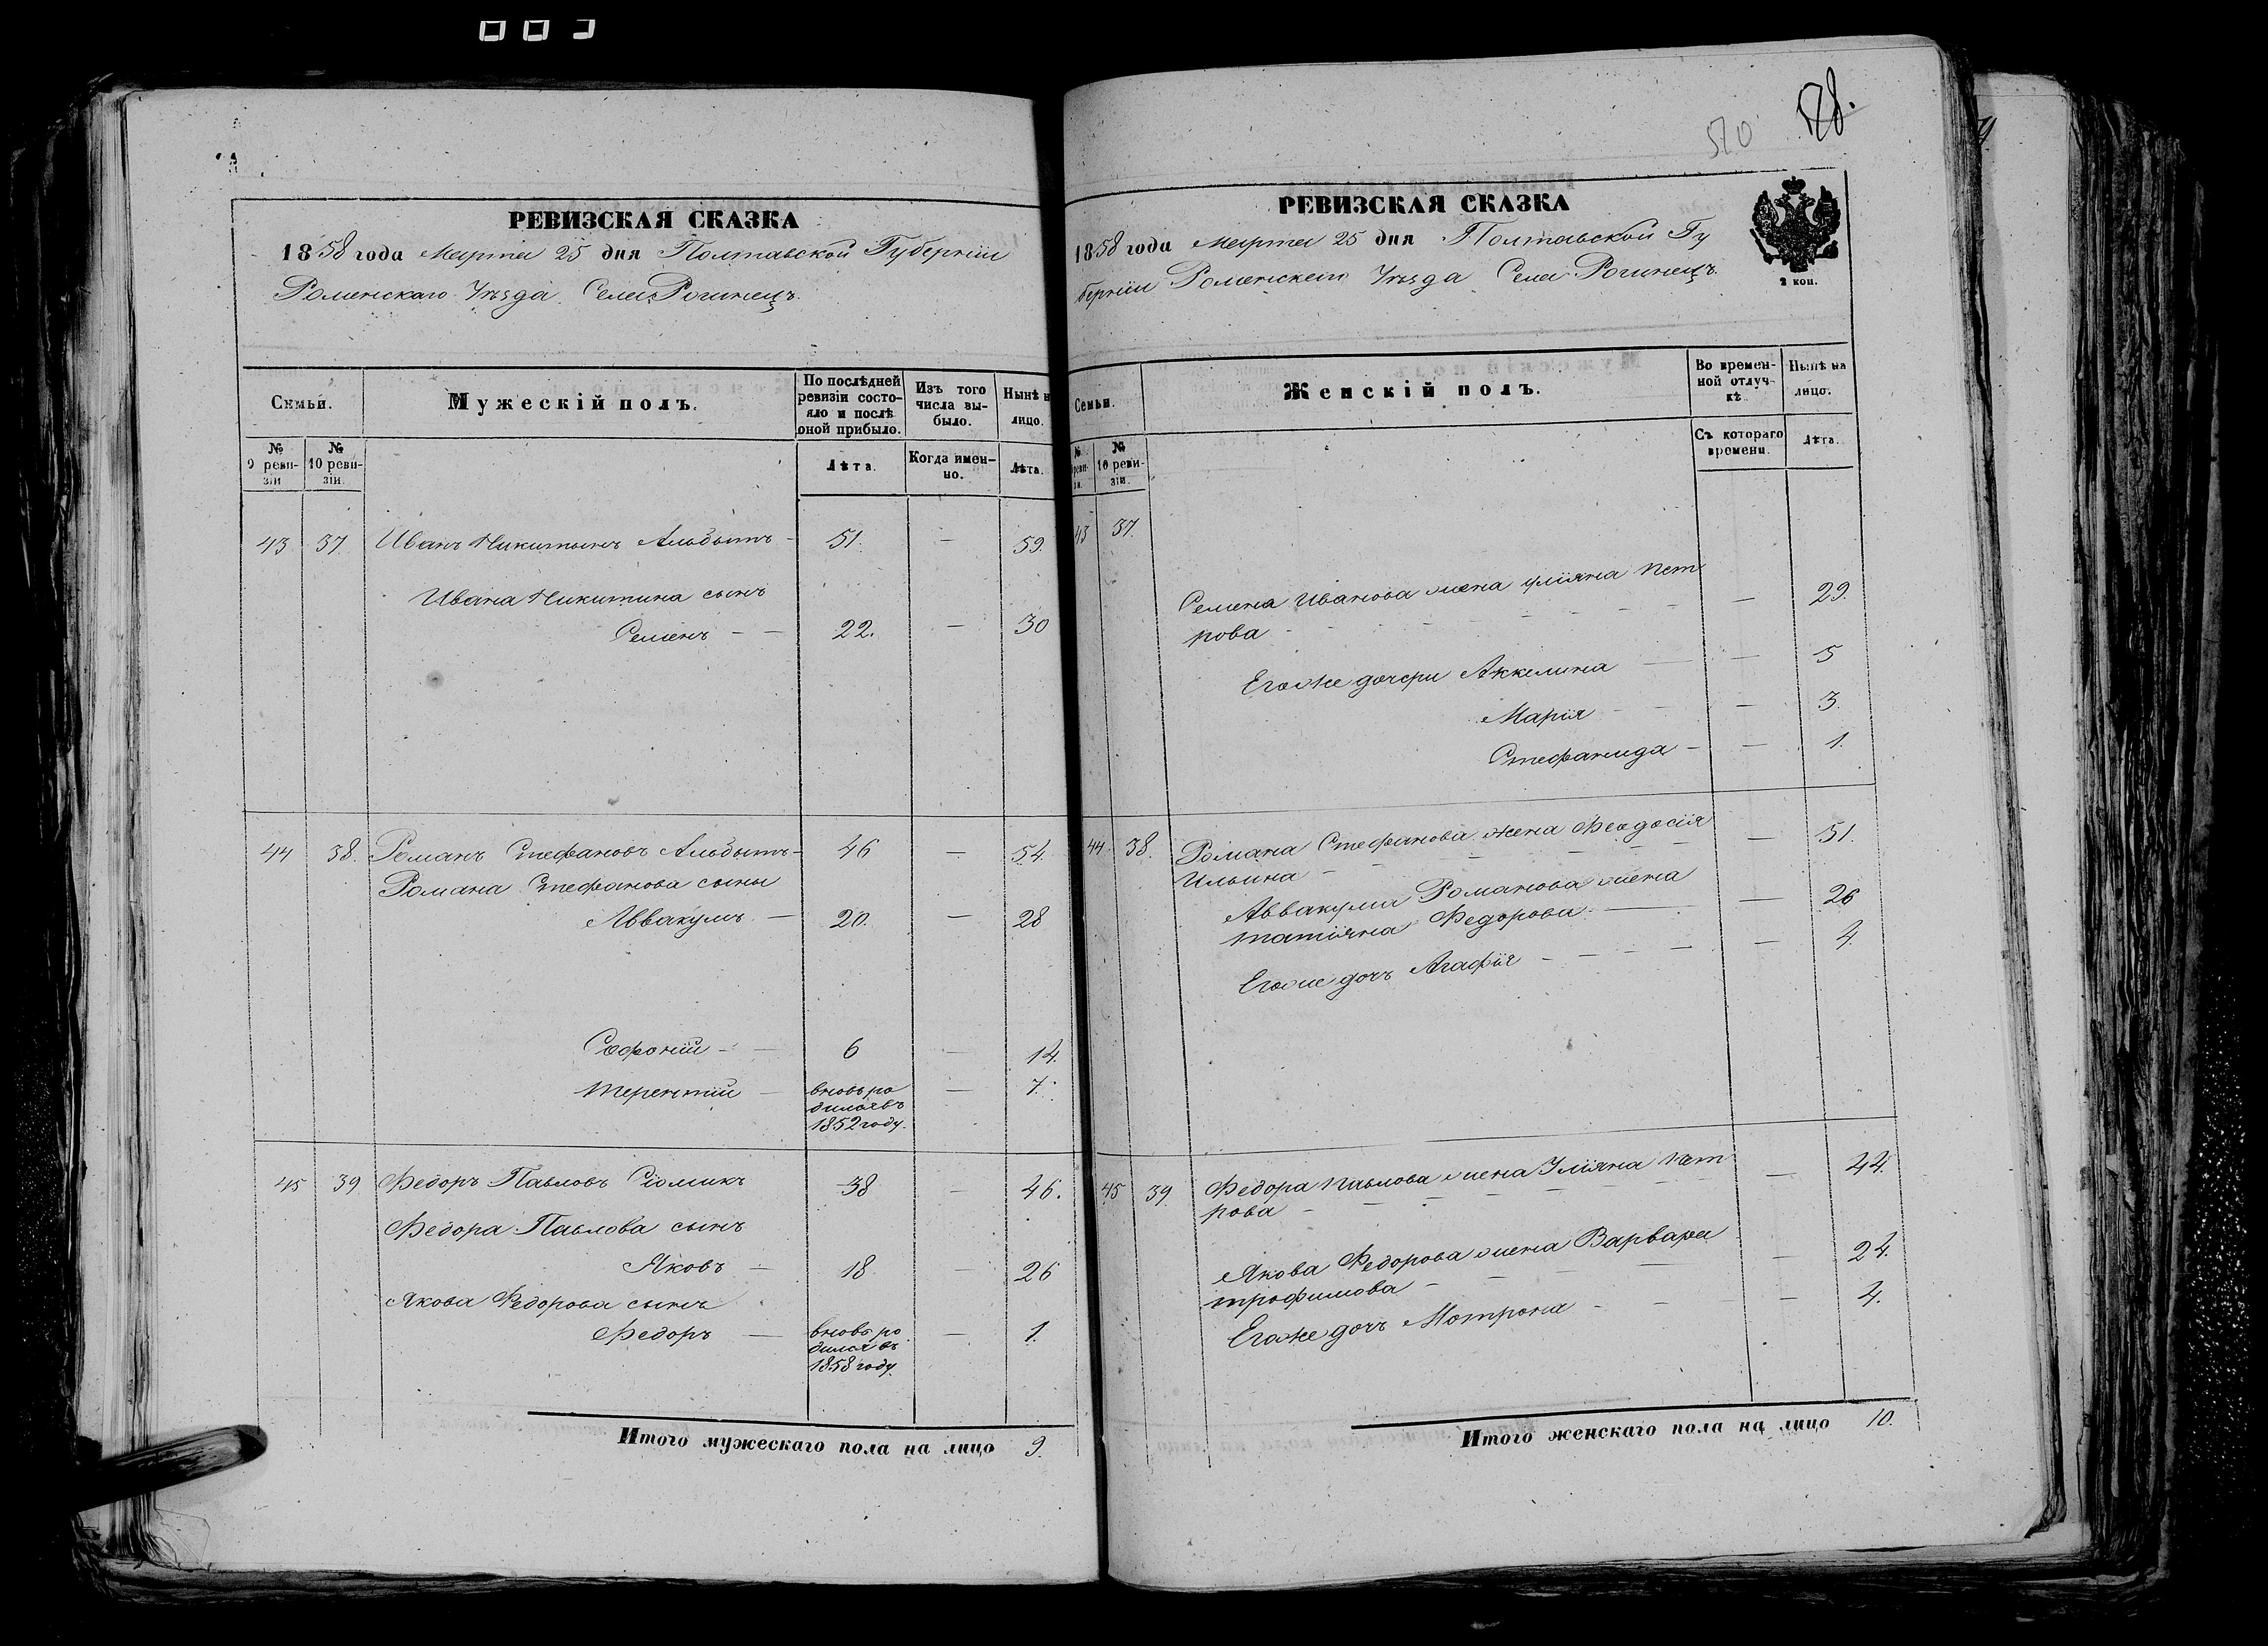 520
528.
РЕВИЗСКАЯ СКАЗКА
1858 года Марта 25 дня Полтавской Губерніи
Роменскаго Уѣзда Села Рогинецъ.
Семьи.
Мужескій полъ.
По послѣдней ревизіи состояло и послѣ оной прибыло.
Изъ того числа выбыло.
Нынѣ н лицо.
№ 9 ревизіи
№ 10 ревизіи.
Лѣта.
Когда именно.
Лѣта.
43 37. Иванъ Никитинъ 51. — 59.
Ивана Никитина сынъ
Семенъ — — 22. — 30
44 38. Романъ Стефановъ 46 — 54.
Романа Стефанова сыны
Аввакумъ — 20. — 28
Софоній — — 6 — 14.
Терентій — вновь ро — 7.
дился въ
1852 году.
45 39 Федоръ Павловъ Сіомикъ 38 — 46.
Федора Павлова сынъ
Яковъ — 18 — 26
Якова Федорова сынъ
Федоръ — вновь ро — 1.
дился въ
1858 году.
Итого мужескаго пола на лицо 9.
РЕВИЗСКАЯ СКАЗКА
1858 года Марта 25 дня Полтавской Гу
берніи Роменскаго Уѣзда Села Рогинецъ.
2 коп.
Семьи.
Женскій полъ.
Во временной отлучкѣ.
Нынѣ на лицо.
№ реви- зи.
№ 10 ревизіи.
Съ котораго времени.
Лѣта.
43 37.
Семена Иванова жена Уліяна Пет
рова — 29.
Егоже дочери Аккелина — — 5
Марія — — 3.
Стефанида — — 1.
44 38. Романа Стефанова жена Феодосія
Ильина — — 51.
Аввакума Романова жена
Татіяна Федорова — — 26
Егоже дочь Агафія — — 4.
45 39 Федора Павлова жена Уліяна Пет
рова — — 44.
Якова Федорова жена Варвара
Трофимова — — 24.
Егоже дочь Мотрона — — 4.
Итого женскаго пола на лицо 10.